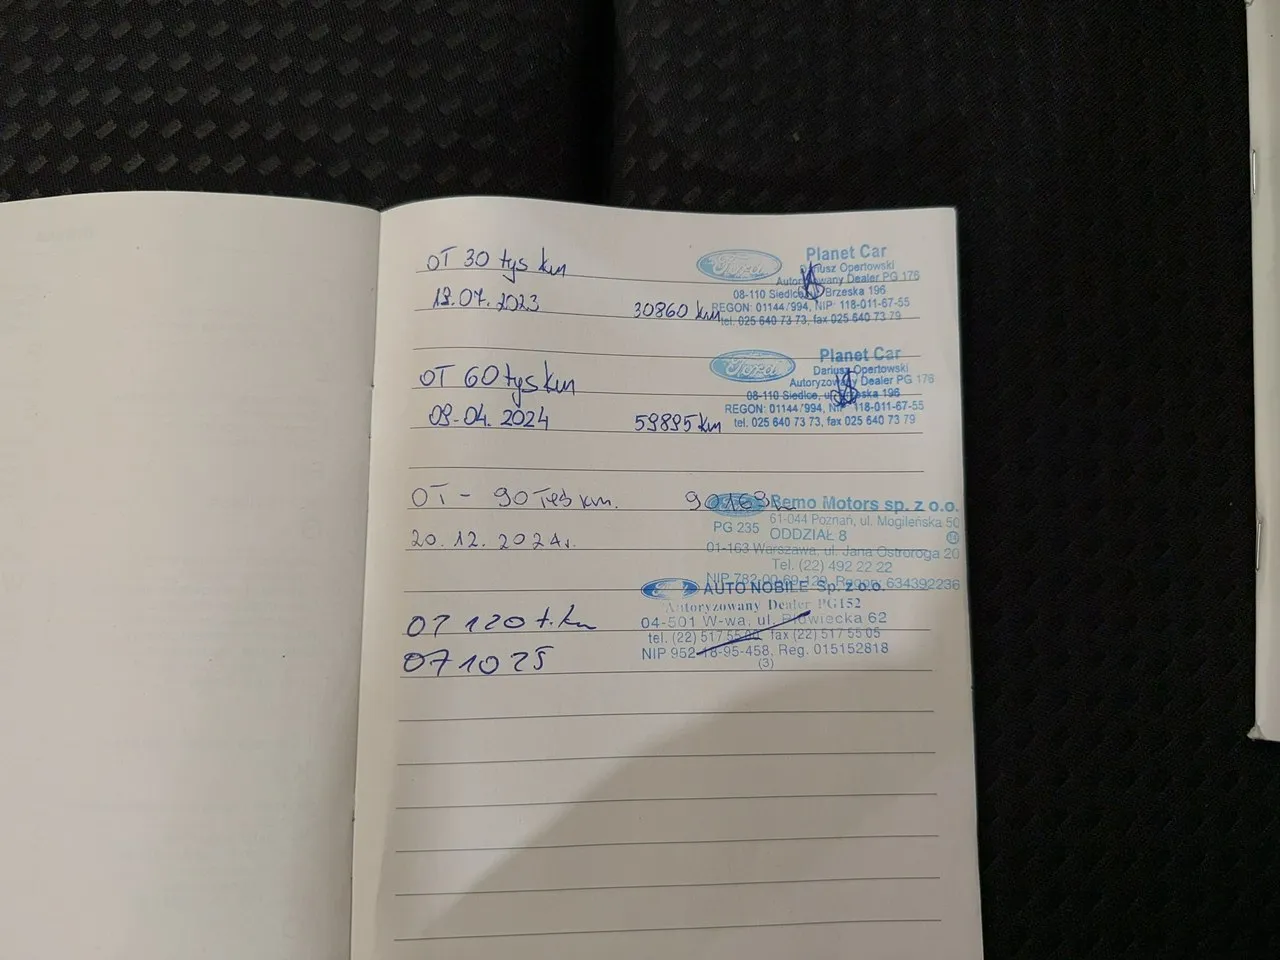 OT 30 tys km
Ford
Planet Car
Dariusz Opertowski
Autoryzowany Dealer PG 176
08-110 Siedlce, Brzeska 196
18.07.2023 30860 km
REGON: 01144/994, NIP: 118-011-67-55
tel. 025 640 73 73, fax 025 640 73 79
OT 60 tys km
Ford
Planet Car
Dariusz Opertowski
Autoryzowany Dealer PG 176
08-110 Siedlce, ul. Brzeska 196
09.04.2024 59895 km
REGON: 01144/994, NIP 118-011-67-55
tel. 025 640 73 73, fax 025 640 73 79
OT - 90 km. 90163
Bemo Motors sp. z o.o.
61-044 Poznań, ul. Mogileńska 50
PG 235 ODDZIAŁ 8
20.12.2024r.
01-163 Warszawa, ul. Jana Ostroroga 20
Tel. (22) 492 22 22
NIP 782-00-69-129, Regon: 634392236
AUTO NOBILE Sp. z o.o.
Autoryzowany Dealer PG152
OT 120 t.km
04-501 W-wa, ul. Płowiecka 62
tel. (22) 517 55 fax (22) 517 55 05
07 10 25
NIP 952-18-95-458, Reg. 015152818
(3)